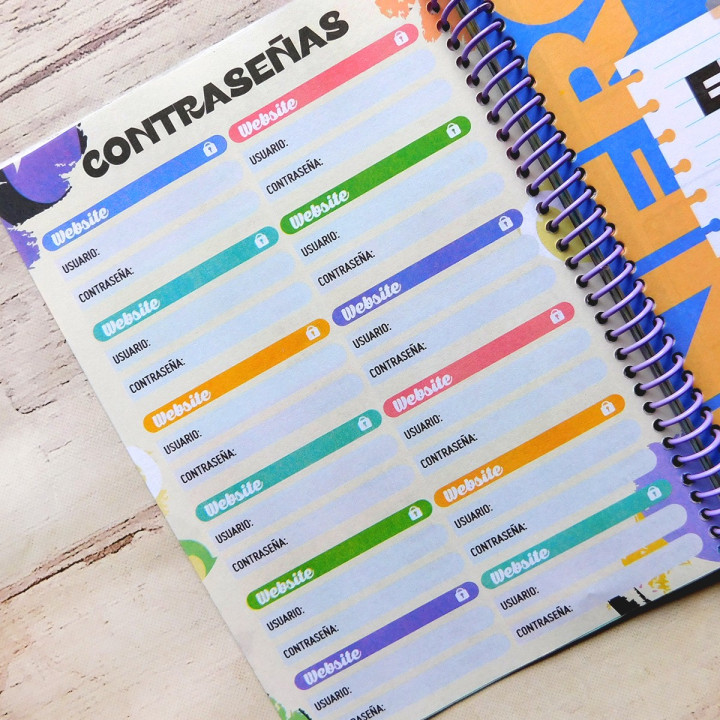 CONTRASEÑAS
Website
USUARIO:
CONTRASEÑA:
Website
USUARIO:
CONTRASEÑA:
Website
USUARIO:
CONTRASEÑA:
Website
USUARIO:
CONTRASEÑA:
Website
USUARIO:
CONTRASEÑA:
Website
USUARIO:
CONTRASEÑA:
Website
USUARIO:
CONTRASEÑA:
Website
USUARIO:
CONTRASEÑA:
Website
USUARIO:
CONTRASEÑA:
Website
USUARIO:
CONTRASEÑA:
Website
USUARIO:
CONTRASEÑA:
Website
USUARIO:
CONTRASEÑA: